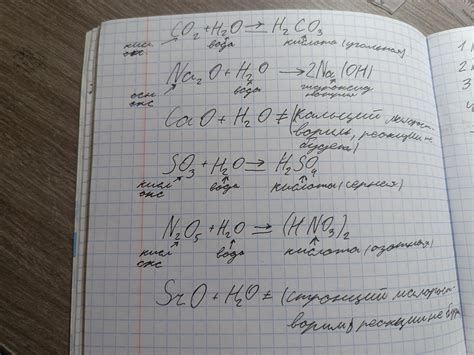 CO₂ + H₂O ⇄ H₂CO₃
кисл вода кислота (угольная)
окс
Na₂O + H₂O → 2Na(OH)
осн вода гидроксид
окс натрия
CaO + H₂O ≠ (Кальций малораст-
ворим, реакции не
будет)
SO₃ + H₂O → H₂SO₄
кисл вода кислота (серная)
окс
N₂O₅ + H₂O → (HNO₃)₂
кисл вода кислота (азотная)
окс
SrO + H₂O ≠ (стронций малораст-
ворим, реакции не буд
1
2